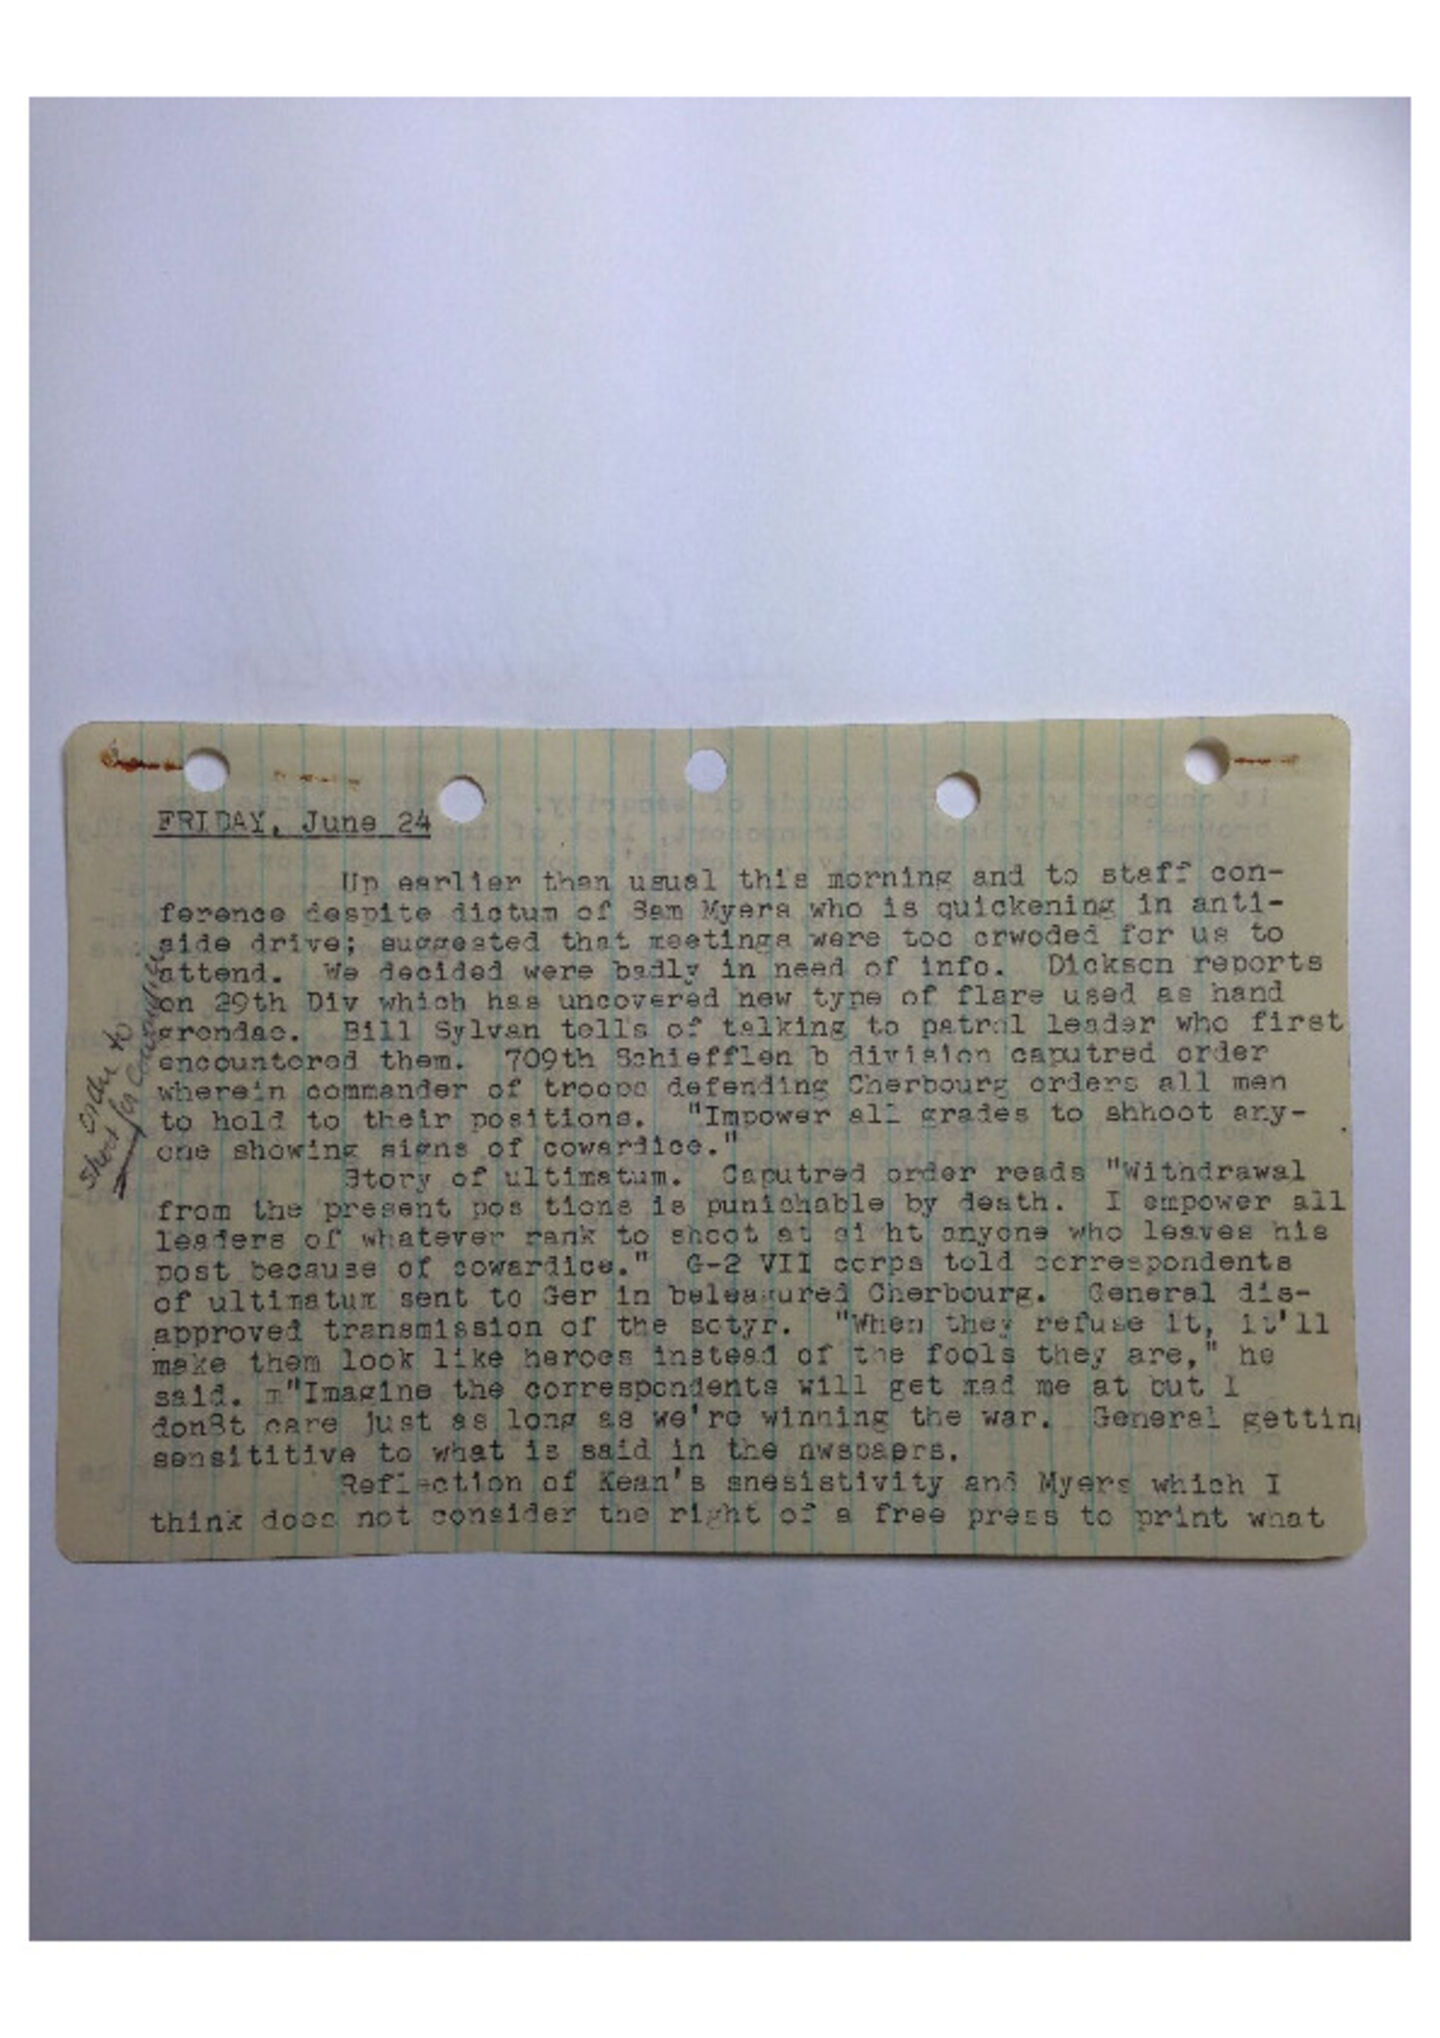 FRIDAY, June 24
Up earlier than usual this morning and to staff con-
ference despite dictum of Sam Myers who is quickening in anti-
side drive; suggested that meetings were too crwoded for us to
attend. We decided were badly in need of info. Dickson reports
on 29th Div which has uncovered new type of flare used as hand
grendae. Bill Sylvan tells of talking to patrol leader who first
encountered them. 709th Schiefflen b division caputred order
wherein commander of troops defending Cherbourg orders all men
to hold to their positions. "Impower all grades to shhoot any-
one showing signs of cowardice."
Story of ultimatum. Caputred order reads "Withdrawal
from the present pos tions is punishable by death. I empower all
leaders of whatever rank to shoot at si ht anyone who leaves his
post because of cowardice." G-2 VII corps told correspondents
of ultimatum sent to Ger in beleagured Cherbourg. General dis-
approved transmission of the sotyr. "When they refuse it, it'll
make them look like heroes instead of the fools they are," he
said. m"Imagine the correspondents will get mad me at but I
don8t care just as long as we're winning the war. General getting
sensititive to what is said in the nwspaers.
Reflection of Kean's snesistivity and Myers which I
think does not consider the right of a free press to print what
order to
shoot for cowardice